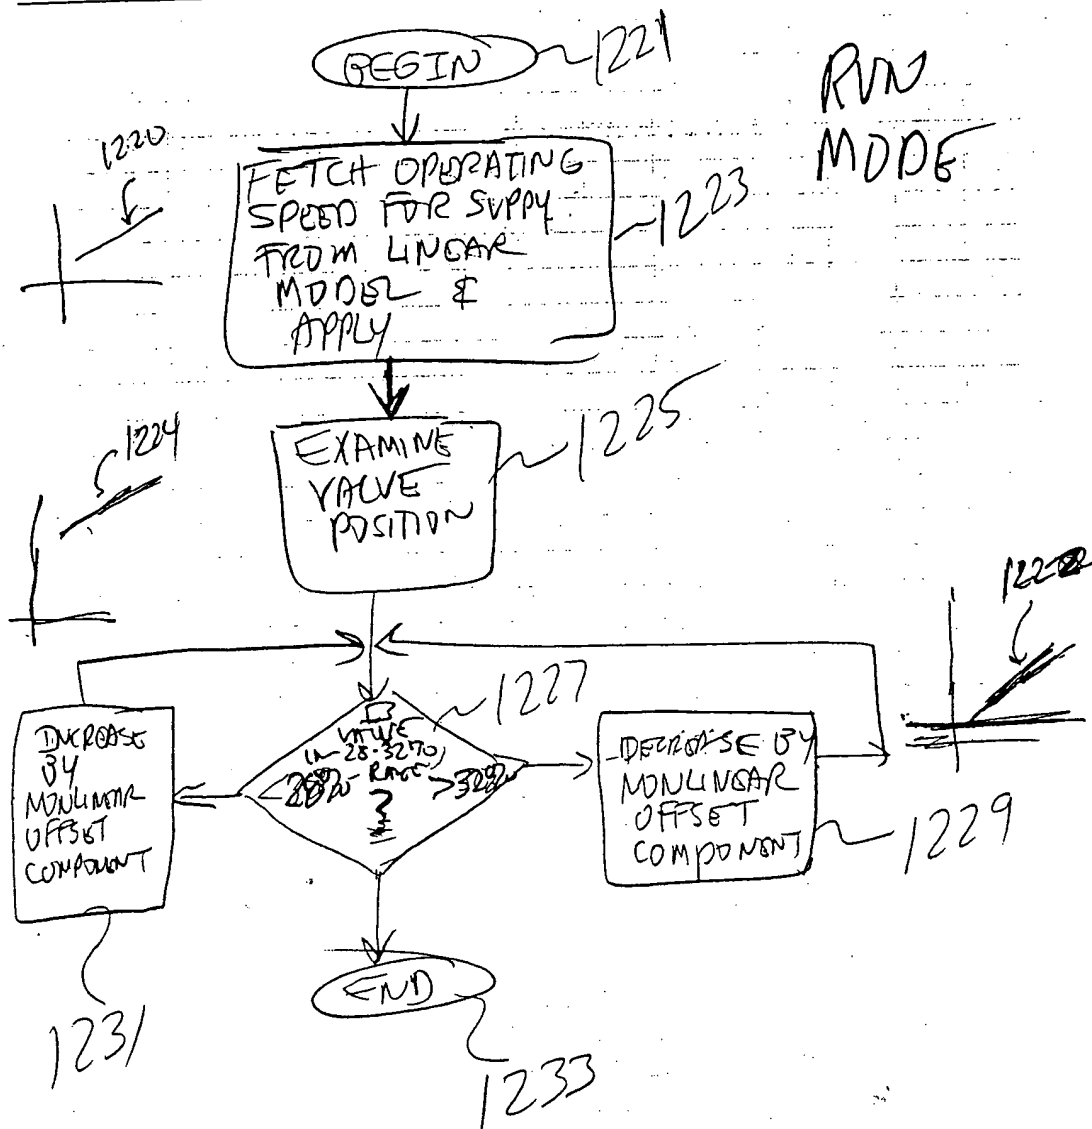 BEGIN
1221
RUN
MODE
1220
FETCH OPERATING
SPEED FOR SUPPY
FROM LINEAR
MODEL &
APPLY
1223
1224
EXAMINE
VALVE
POSITION
1225
1222
1227
IS
VALVE
IN 28-32%
RANGE
?
<28%
>32%
INCREASE
BY
NONLINEAR
OFFSET
COMPONENT
DECREASE BY
NONLINEAR
OFFSET
COMPONENT
1229
END
1231
1233